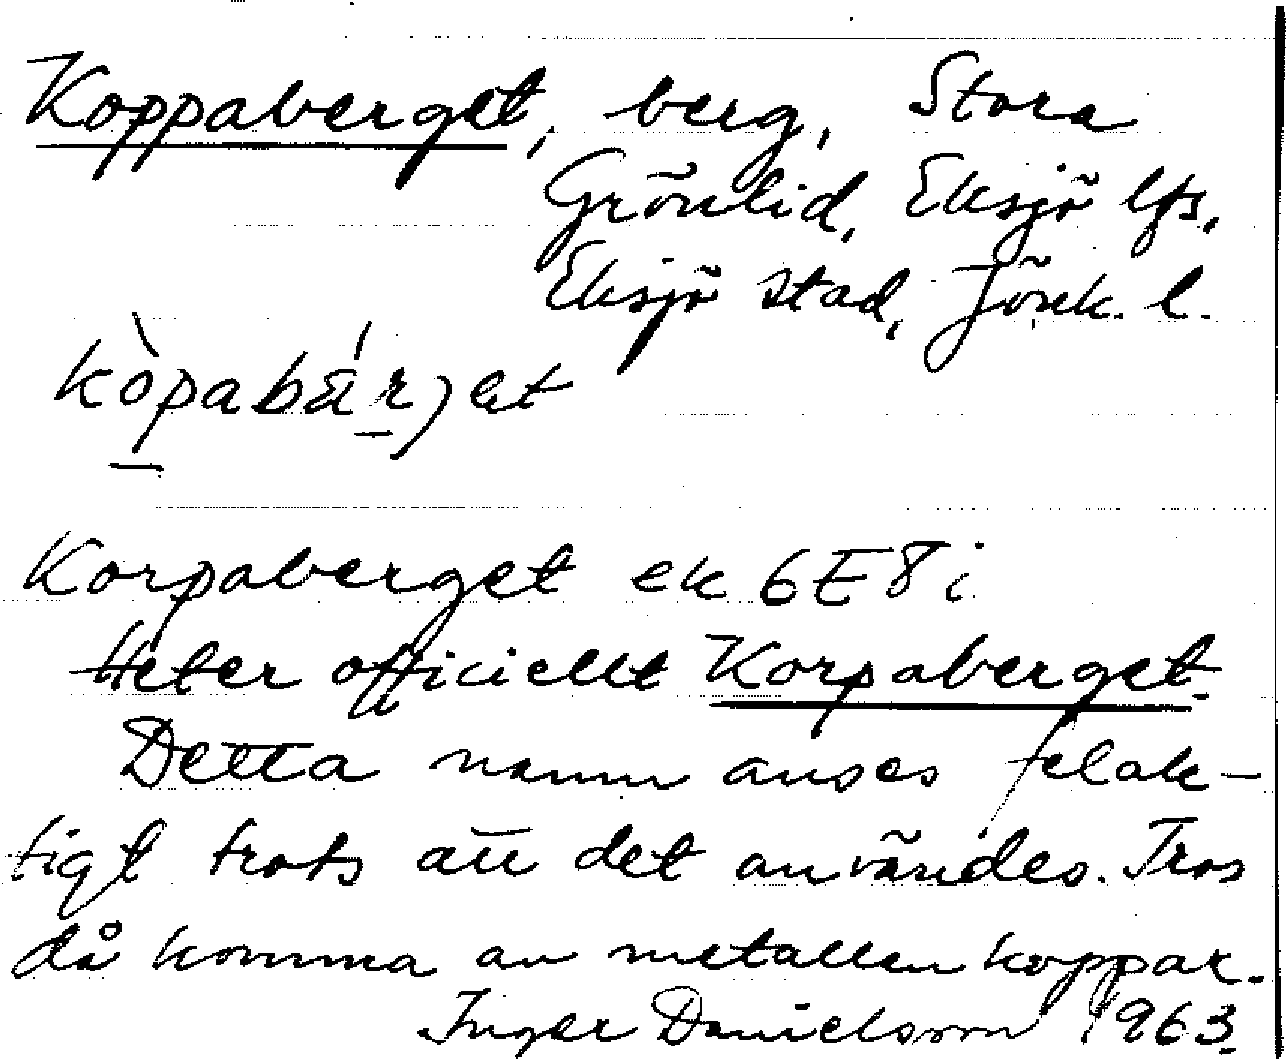 Koppaberget, berg, Stora
Grönlid, Eksjö lfs,
Eksjö stad, Jönk. l.
kòpabä́rjet
Korpaberget ek 6E8i
Heter officiellt Korpaberget.
Detta namn anses felak-
tigt trots att det användes. Tros
då komma av metallen koppar.
Inger Danielsson 1963.